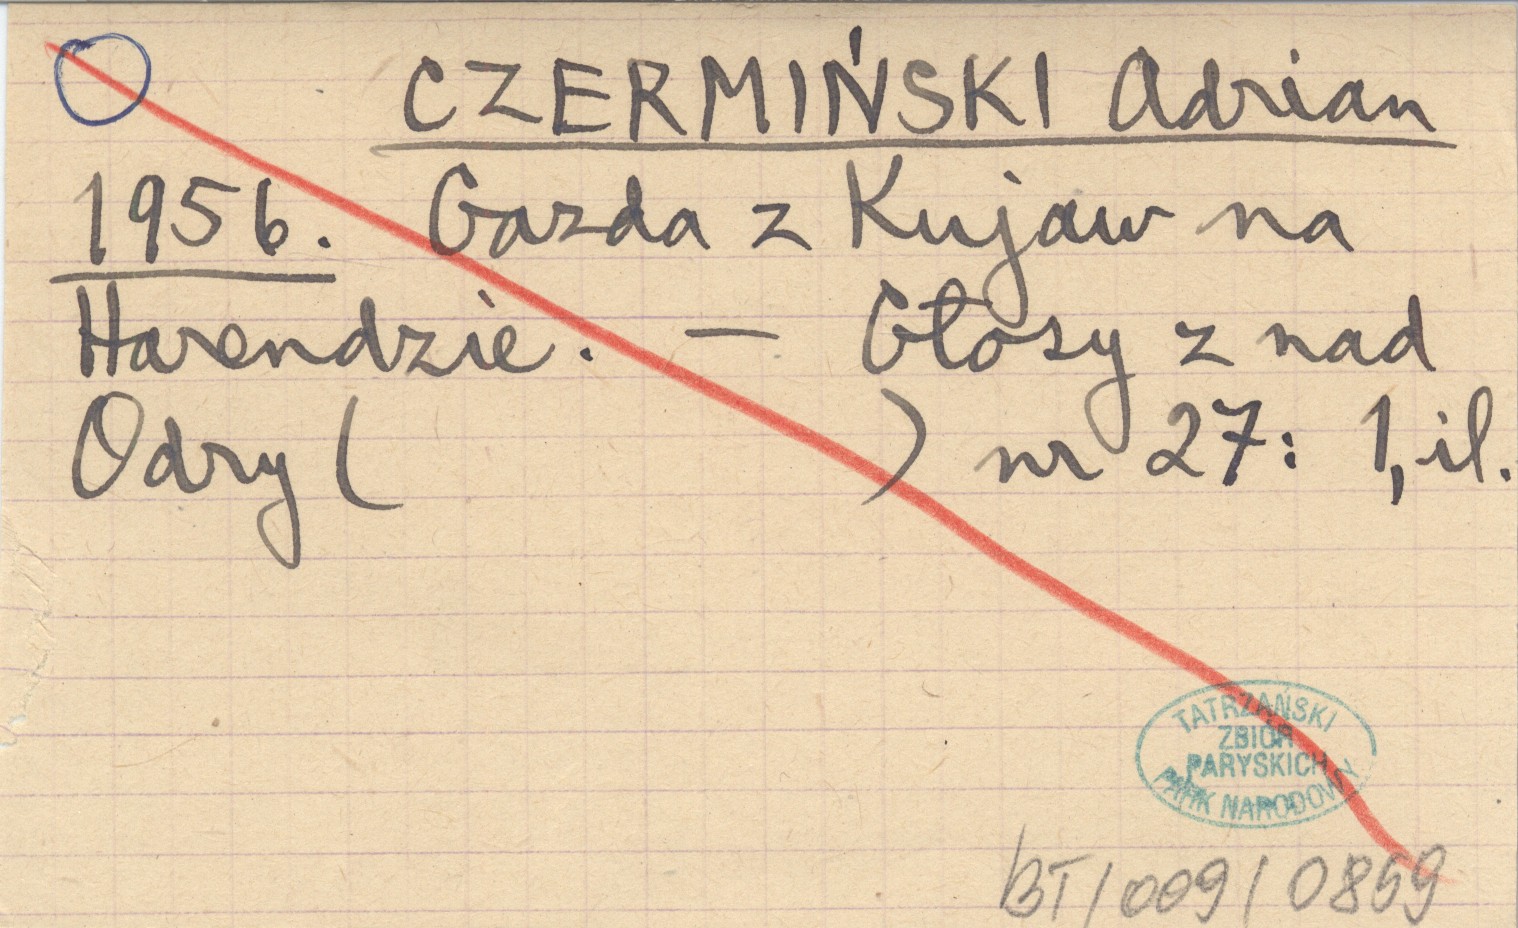 CZERMIŃSKI Adrian
1956. Gazda z Kujaw na
Harendzie. — Głosy z nad
Odry ( ) nr 27: 1, il.
TATRZAŃSKI
ZBIÓR
PARYSKICH
PARK NARODOWY
BT/009/0859